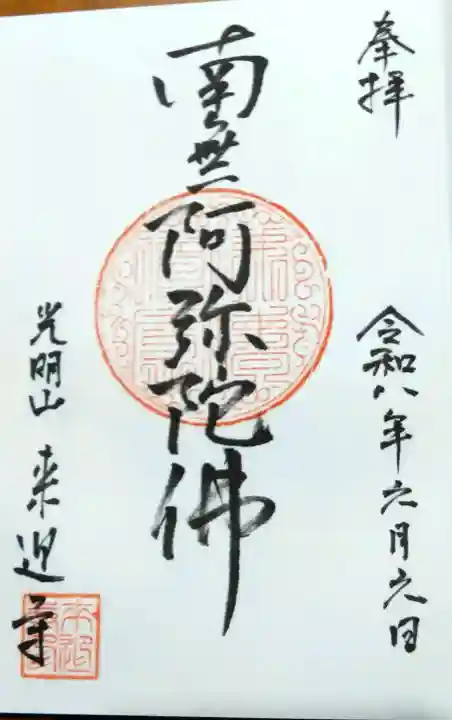 奉拝
令和八年六月六日
南無阿弥陀佛
光明山 来迎寺